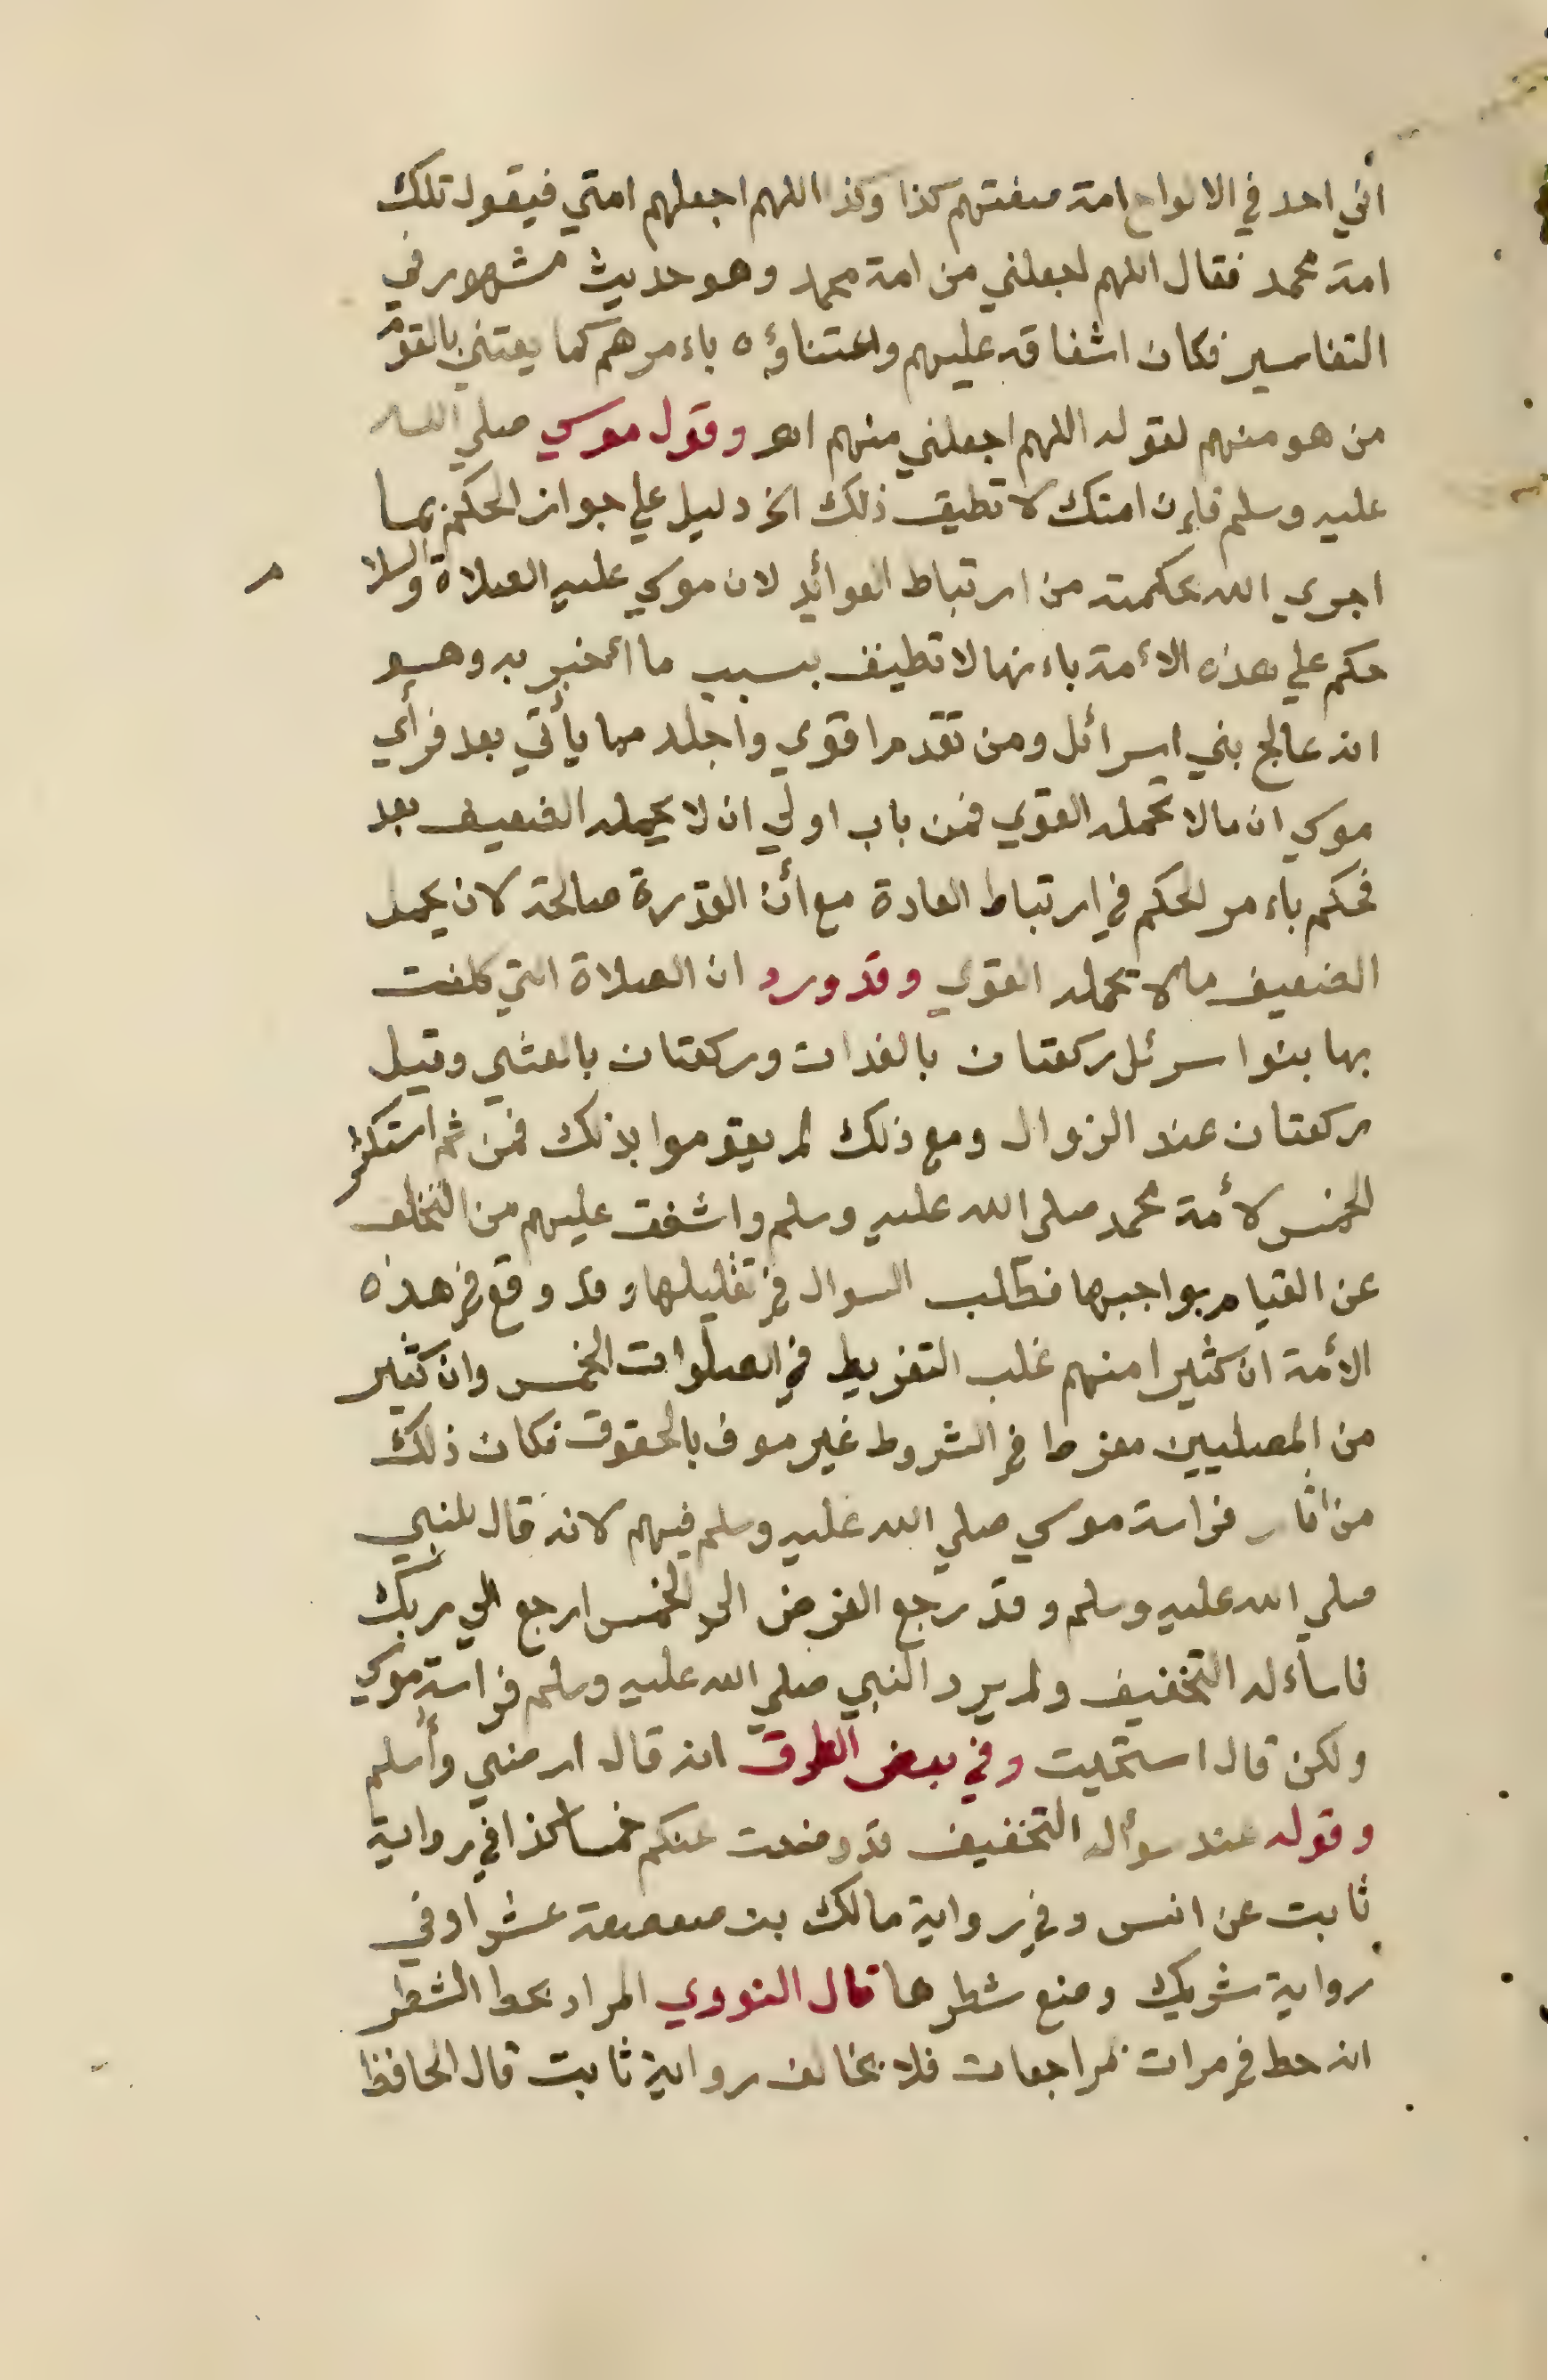 اني اجد في الالواح امة صفتهم كذا وكذا اللهم اجعلهم امتي فيقول تلك
امة محمد فقال اللهم اجعلني من امة محمد وهو حديث مشهور في
التفاسير فكان اشفاقه عليهم واعتناؤه باءمرهم كما يعتني بالقوم
من هو منهم لقوله اللهم اجعلني منهم اهـ وقول موسي صلي الله
عليه وسلم فاءن امتك لا تطيق ذلك الخ دليل علي جواز الحكم بما
اجري الله بحكمته من ارتباط العوائد لان موسي عليه الصلاة والسلام
حكم علي هذه الأمة باءنها لا تطيق بسبب ما أخبر به وهو
انه عالج بني اسرائل ومن تقدم اقوي واجلد مما يأتي بعد فرأي
موسي ان ما لا تحمله القوي فمن باب اولي ان لا يحمله الضعيف بعد
فحكم باءمر الحكم في ارتباط العادة مع أن القدرة صالحة لان يحمل
الضعيف ما لا تحمله القوي وقد ورد ان الصلاة التي كلفت
بها بنوا سرئل ركعتان بالغدات وركعتان بالعشي وقيل
ركعتان عند الزوال ومع ذلك لم يقوموا بذلك فمن ثم استكثر
الخمس لأمة محمد صلي الله عليه وسلم واشفق عليهم من التخلف
عن القيام بواجبها فطلب السوال في تقليلها وقد وقع في هذه
الأمة ان كثيرا منهم غلب التفريط في الصلوات الخمس وان كثير
من المصليين مفرطا في الشروط غير موف بالحقوق فكان ذلك
من اثار فراسة موسي صلي الله عليه وسلم فيهم لانه قال للنبي
صلي الله عليه وسلم وقد رجع الفرض الي الخمس ارجع الي ربك
فاساءله التخفيف ولم يرد النبي صلي الله عليه وسلم فراسة موسي
ولكن قال استحيت وفي بعض الطرق انه قال ارضي وأسلم
وقوله عند سوأله التخفيف قد وضعت عنكم خمسا كذا في رواية
ثابت عن انس وفي رواية مالك بن صعصعة عشرا وفي
رواية شريك وضع شطرها قال النووي المراد بحط الشطر
انه حط في مرات بمراجعات فلا يخالف رواية ثابت قال الحافظ